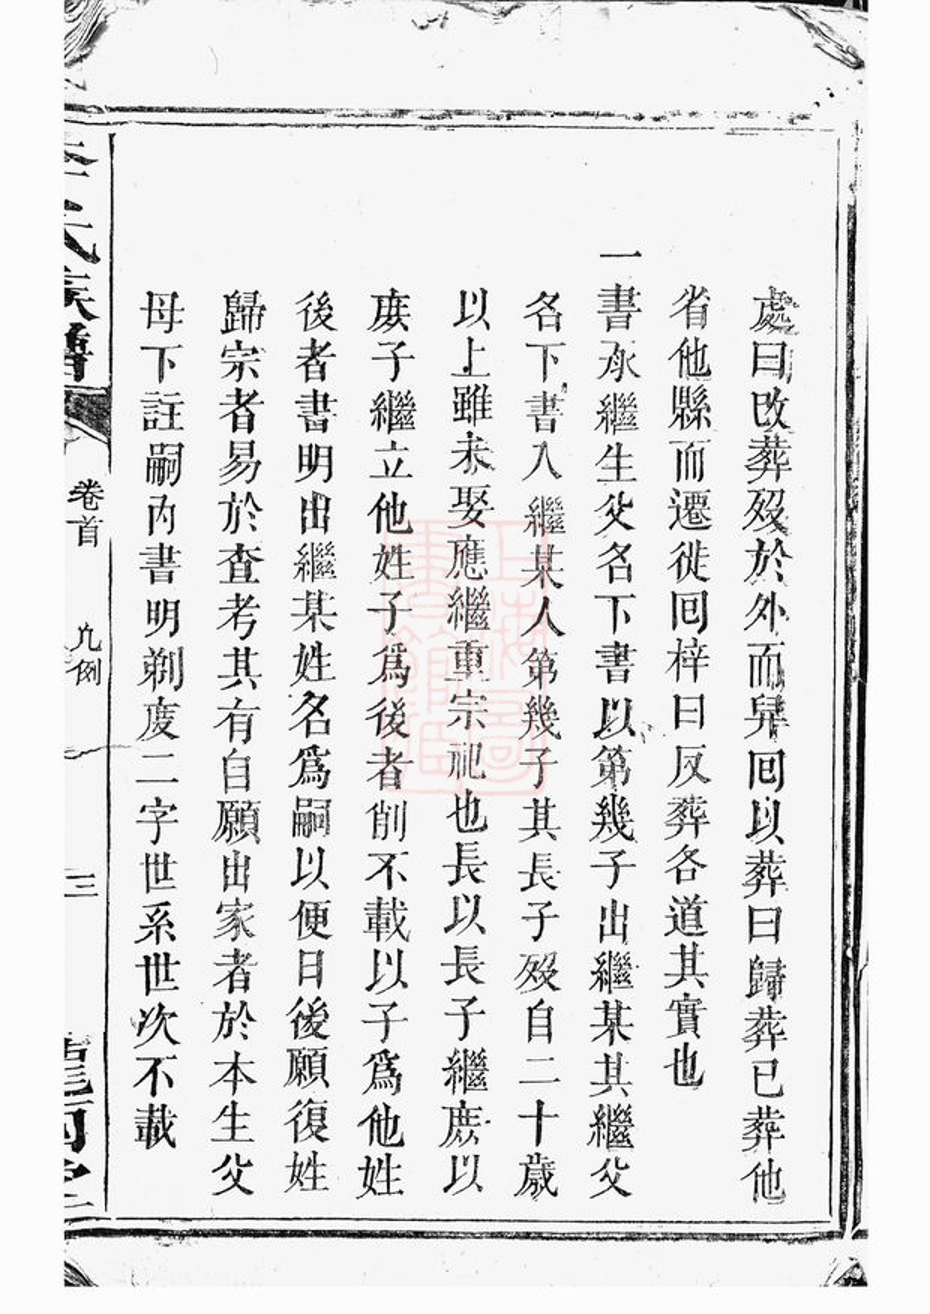 處曰改葬歿於外而舁回以葬曰歸葬已葬他
省他縣而遷徙回梓曰反葬各道其實也
一書承繼生父名下書以第幾子出繼某其繼父
名下書入繼某人第幾子其長子歿自二十歲
以上雖未娶應繼重宗祀也長以長子繼庶以
庶子繼立他姓子爲後者削不載以子爲他姓
後者書明出繼某姓名爲嗣以便日後願復姓
歸宗者易於查考其有自願出家者於本生父
母下註嗣內書明剃度二字世系世次不載
李氏族譜
卷首
凡例
三